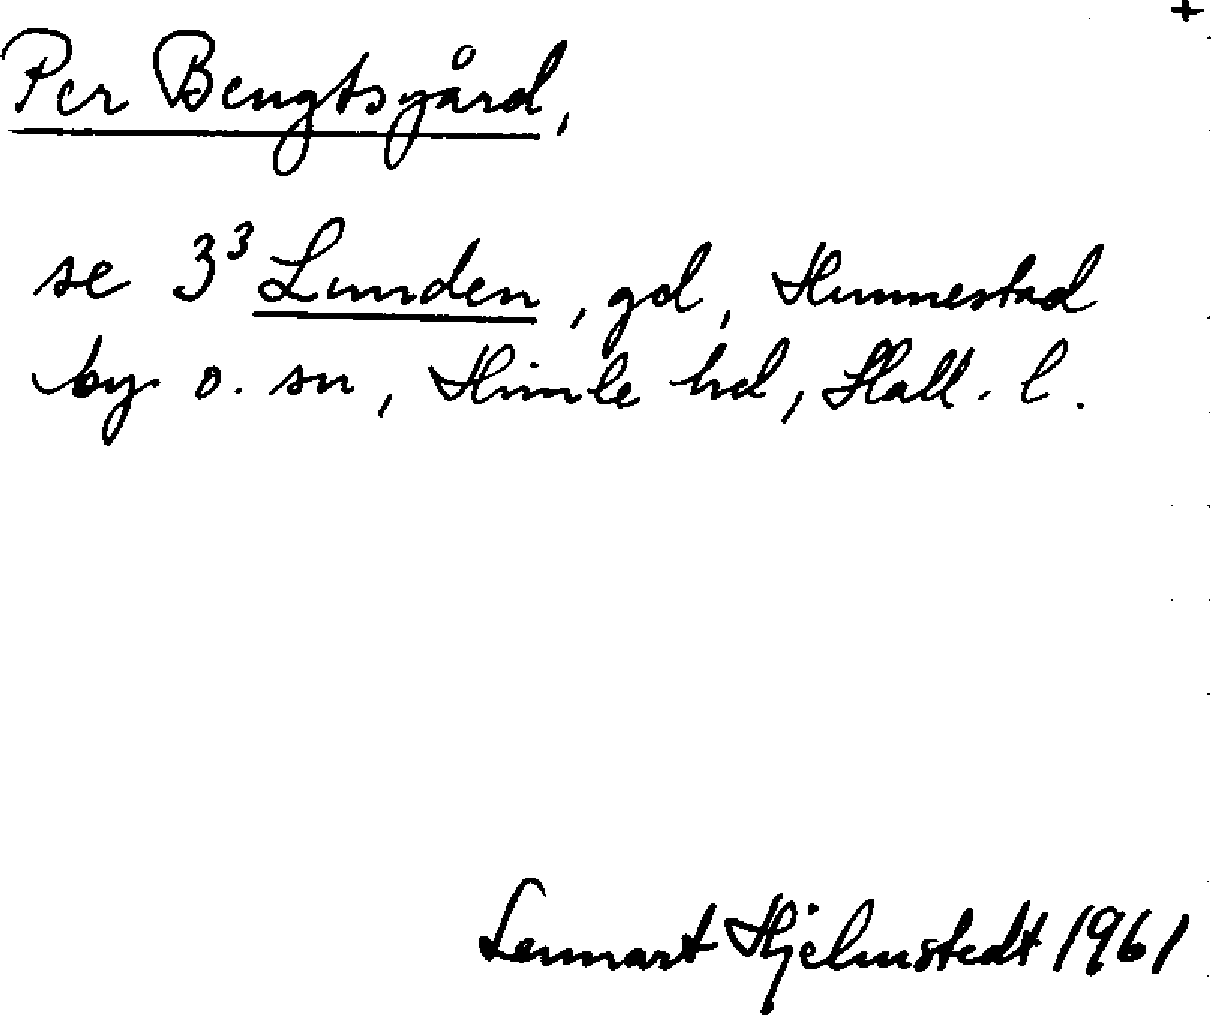 +
Per Bengtsgård,
se 3³ Lunden, gd, Hunnestad
by o. sn, Himle hd, Hall. l.
Lennart Hjelmstedt 1961